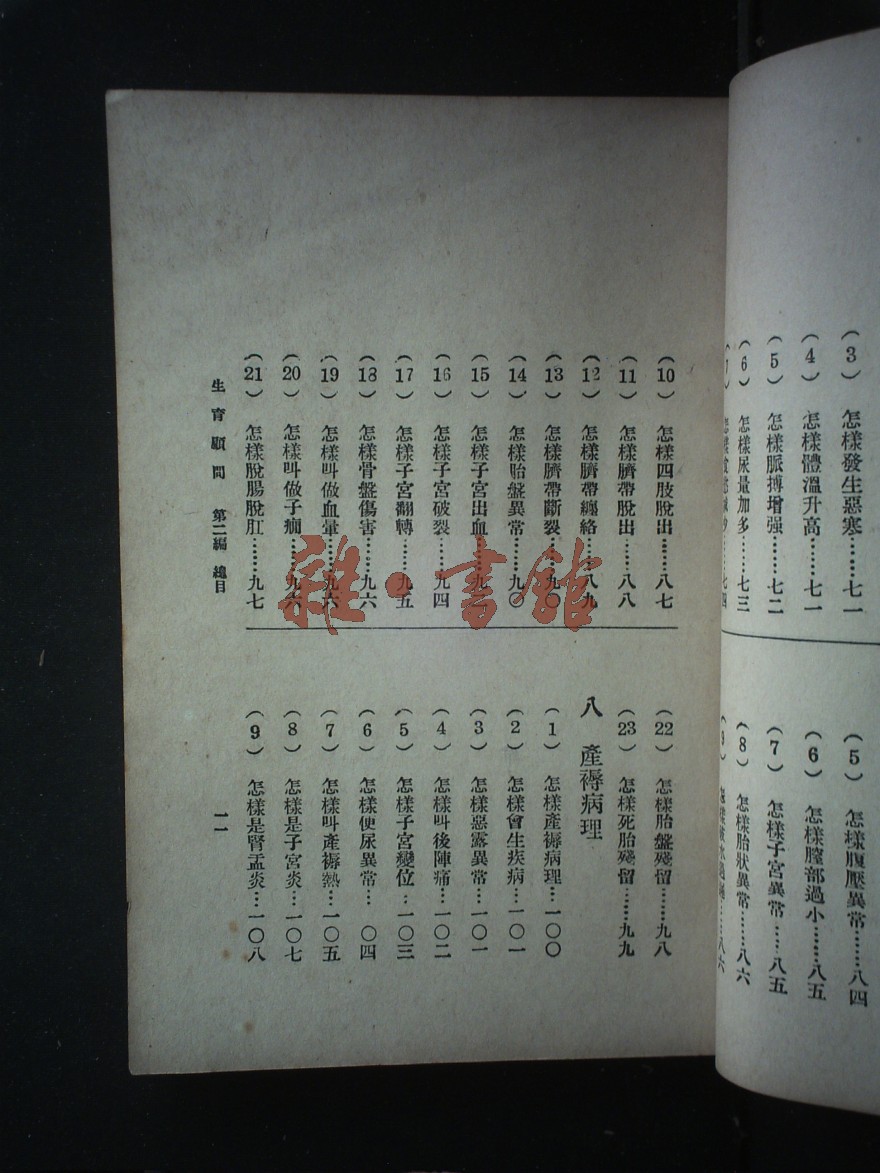 (3) 怎樣發生惡寒……七一
(4) 怎樣體溫升高……七一
(5) 怎樣脈搏增强……七二
(6) 怎樣尿量加多……七三
(7) 怎樣……七四
(5) 怎樣腹壓異常……八四
(6) 怎樣膣部過小……八五
(7) 怎樣子宮異常……八五
(8) 怎樣胎狀異常……八六
(9) 怎樣……八六
(10) 怎樣四肢脫出……八七
(11) 怎樣臍帶脫出……八八
(12) 怎樣臍帶纏絡……八九
(13) 怎樣臍帶斷裂……九〇
(14) 怎樣胎盤異常……九〇
(15) 怎樣子宮出血……九
(16) 怎樣子宮破裂……九四
(17) 怎樣子宮翻轉……九五
(18) 怎樣骨盤傷害……九六
(19) 怎樣叫做血暈……九六
(20) 怎樣叫做子癎……九六
(21) 怎樣脫腸脫肛……九七
(22) 怎樣胎盤殘留……九八
(23) 怎樣死胎殘留……九九
八 產褥病理
(1) 怎樣產褥病理…一〇〇
(2) 怎樣會生疾病…一〇一
(3) 怎樣惡露異常…一〇一
(4) 怎樣叫後陣痛…一〇二
(5) 怎樣子宮變位…一〇三
(6) 怎樣便尿異常…〇四
(7) 怎樣叫產褥熱…一〇五
(8) 怎樣是子宮炎…一〇七
(9) 怎樣是腎盂炎…一〇八
生育顧問 第二編 總目
一一
雜·書館